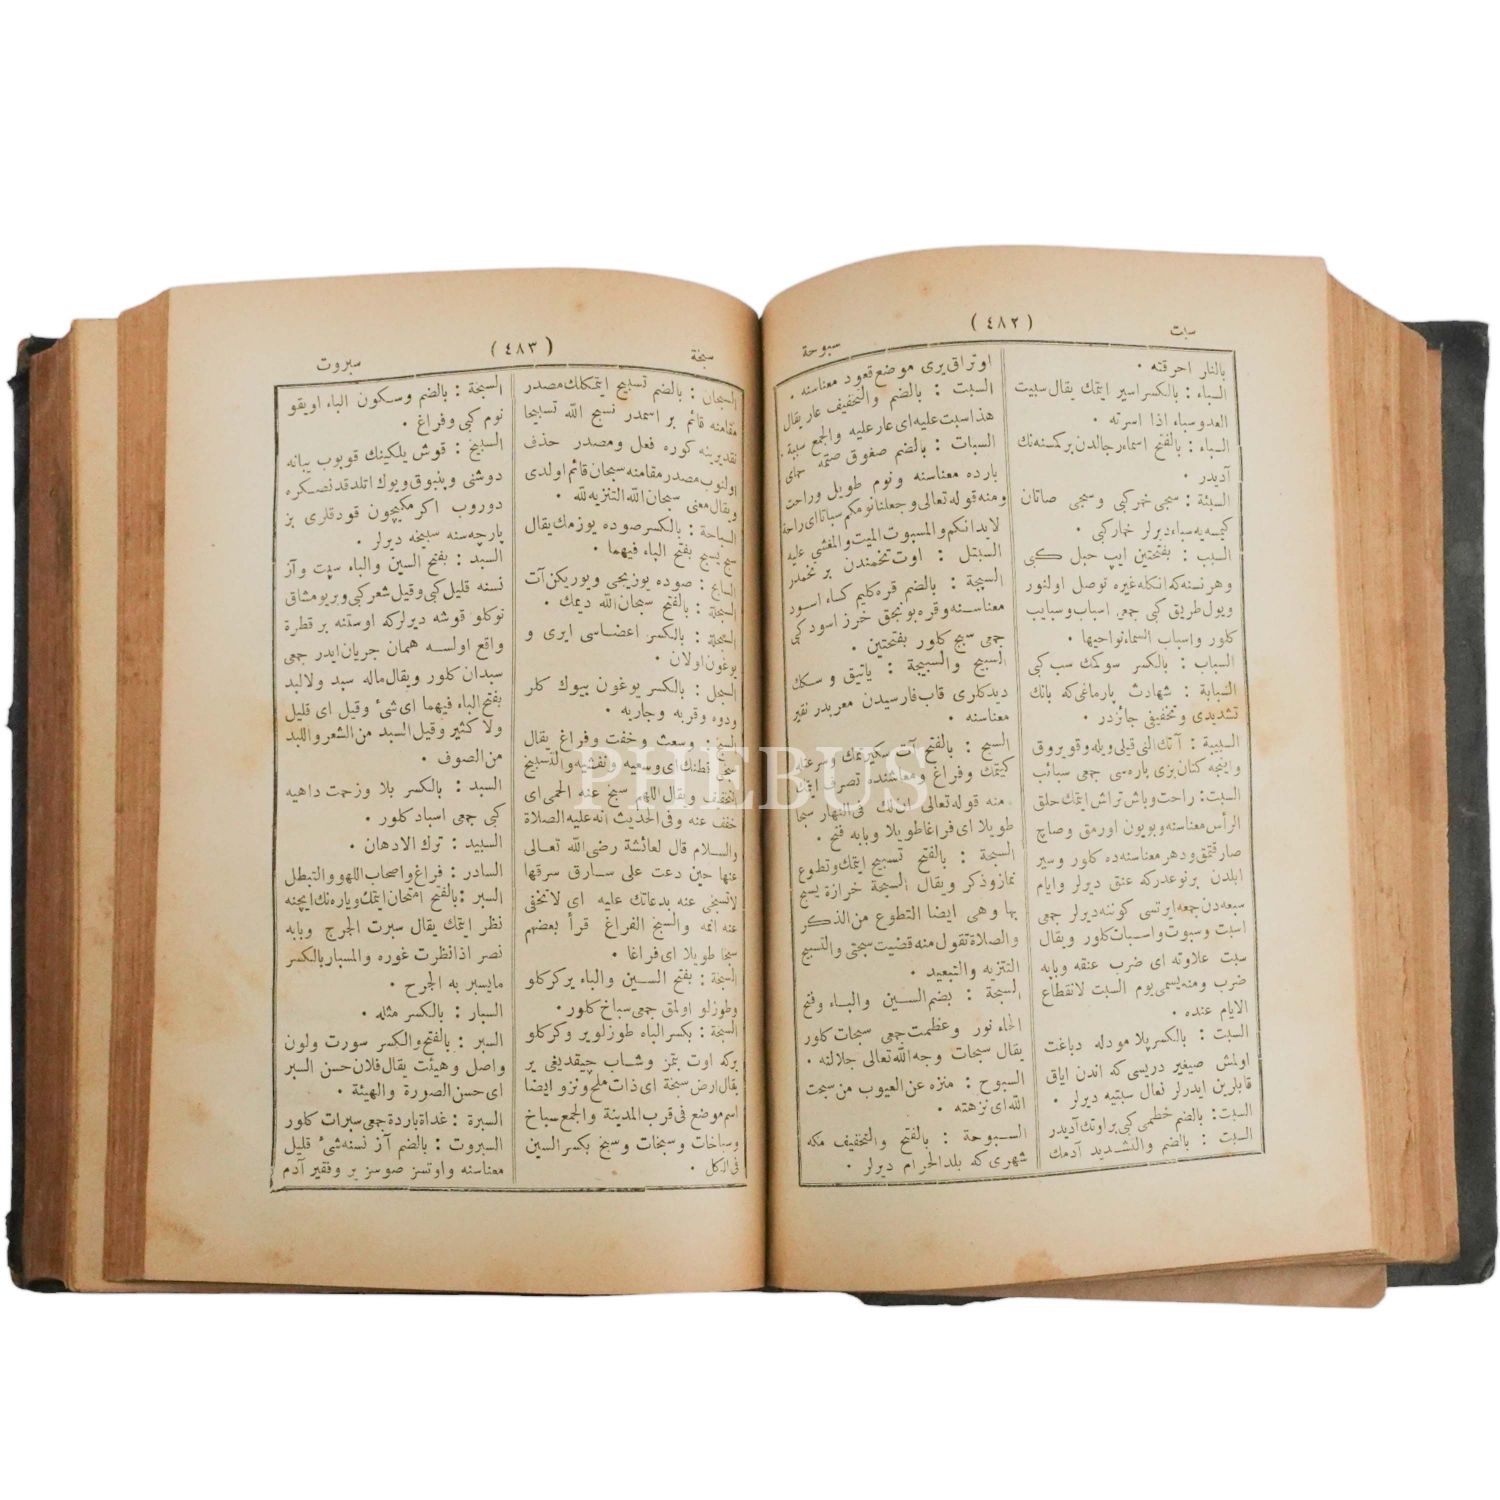 سبات
( ٤٨٢ )
سبوحة
بالنار احرقته .
السباء : بالكسر اسير ايتمك يقال سبيت
العدو سباء اذا اسرته .
السباء : بالفتح اسماء رجالدن بر كمسنه نك
آديدر .
السبئة : سجى خمر كبى و سجى صاتان
كيمسه يه سباء ديرلر خمار كبى .
السبب : بفتحتين ايپ حبل كبى
و هر نسنه كه انكله غيره توصل اولنور
ويول طريق كبى جمعى اسباب وسبايب
كلور واسباب السماء نواحيها .
السباب : بالكسر سوكمك سب كبى
السبابة : شهادت پارماغى كه بانك
تشديدى وتخفيفى جائزدر .
السبيبة : آتك النى قيلى ويله و قويروق
و اينجه كتان بزى پاره سى جمعى سبائب
السبت : راحت وباش تراش ايتمك حلق
الرأس معناسنه وبويون اورمق وصاچ
صارقتمق ودهر معناسنه ده كلور وسير
ابلدن بر نوعدر كه عنق ديرلر وايام
سبعه دن جمعه ايرتسى كوننه ديرلر جمعى
اسبت وسبوت واسبات كلور ويقال
سبت علاوته اى ضرب عنقه وبابه
ضرب ومنه يسمى يوم السبت لانقطاع
الايام عنده .
السبت : بالكسر پلا مودله دباغت
اولمش صيغير دريسى كه اندن اياق
قابلرين ايدرلر نعال سبتيه ديرلر .
السبت : بالضم خطمى كبى بر اوتك آديدر
السبت : بالضم والتشديد آدمك
اوتراق يرى موضع قعود معناسنه .
السبت : بالضم والتخفيف عار يقال
هذا سبت عليه اى عار عليه والجمع سببة .
السبات : بالضم صغوق صتمه سماى
بارده معناسنه ونوم طويل وراحت
ومنه قوله تعالى وجعلنا نومكم سباتا اى راحة
لابدانكم والمسبوت الميت والمغشى عليه
السبتل : اوت تخمندن بر تخمدر
السبجة : بالضم قره كليم كساء اسود
معناسنه و قره بونجق خرز اسود كبى
جمعى سبج كلور بفتحتين .
السبيج والسبيجة : ياتيق و سكك
ديدكلرى قاب فارسيدن معربدر نقير
معناسنه .
السبح : بالفتح آت سكيرتمك وسرعتله
كيتمك وفراغ ومعاشنده تصرف ايتمك
منه قوله تعالى ان لك فى النهار سبحا
طويلا اى فراغا طويلا وبابه فتح .
السبحة : بالفتح تسبيح ايتمك وتطوع
نماز وذكر ويقال السبحة خرازة يسبح
بها وهى ايضا التطوع من الذكر
والصلاة تقول منه قضيت سبحتى والتسبيح
التنزيه والتبعيد .
السبحة : بضم السين والباء وفتح
الحاء نور وعظمت جمعى سبحات كلور
يقال سبحات وجه الله تعالى جلالته .
السبوح : منزه عن العيوب من سبحت
الله اى نزهته .
السبوحة : بالفتح والتخفيف مكه
شهرى كه بلد الحرام ديرلر .
سبخة
( ٤٨٣ )
سبروت
السبحان : بالضم تسبيح ايتمكلك مصدر
مقامنه قائم بر اسمدر نسبح الله تسبيحا
تقديرينه كوره فعل ومصدر حذف
اولنوب مصدر مقامنه سبحان قائم اولدى
ويقال معنى سبحان الله التنزيه لله .
السباحة : بالكسر صوده يوزمك يقال
سبح يسبح بفتح الباء فيهما .
السابح : صوده يوزيجى ويوريكن آت
السبحلة : بالفتح سبحان الله ديمك .
السبحلة : بالكسر اعضاسى ايرى و
يوغون اولان .
السبحل : بالكسر يوغون بيوك كلر
ودوه وقربه وجاريه .
السبخ : وسعت وخفت وفراغ يقال
سبخى قطنك اى وسعيه ونفشيه والتسبيخ
التخفيف ويقال اللهم سبخ عنه الحمى اى
خفف عنه وفى الحديث انه عليه الصلاة
والسلام قال لعائشة رضى الله تعالى
عنها حين دعت على سارق سرقها
لا تسبخى عنه بدعائك عليه اى لا تخفى
عنه اثمه والسبخ الفراغ قرأ بعضهم
سبخا طويلا اى فراغا .
السبخة : بفتح السين والباء ير كركلو
وطوزلو اولمق جمعى سباخ كلور .
السبخة : بكسر الباء طوزلو ير وكركلو
يركه اوت بتمز وشاب چيقديغى ير
يقال ارض سبخة اى ذات ملح ونزو ايضا
اسم موضع فى قرب المدينة والجمع سباخ
وسباخات وسبخات وسبخ بكسر السين
فى الكل .
السبخة : بالضم وسكون الباء اويقو
نوم كبى وفراغ .
السبيخ : قوش يلكينك قوپوب يبانه
دوشنى وپنبوق ويوك اتلدقدنصكره
دوروب اكرمكيچون قودقلرى بز
پارچه سنه سبيخه ديرلر .
السبد : بفتح السين والباء سپت وآز
نسنه قليل كبى وقيل شعر كبى وبريو مشاق
توكلو قوشه ديرلركه اوستنه بر قطرة
واقع اولسه همان جريان ايدر جمعى
سبدان كلور ويقال ماله سبد ولالبد
بفتح الباء فيهما اى شئ وقيل اى قليل
ولا كثير وقيل السبد من الشعر واللبد
من الصوف .
السبد : بالكسر بلا وزحمت داهيه
كبى جمعى اسباد كلور .
السبيد : ترك الادهان .
السادر : فراغ واصحاب اللهو والتبطل
السبر : بالفتح امتحان ايتمك وياره نك ايچنه
نظر ايتمك يقال سبرت الجرح وبابه
نصر اذا نظرت غوره والمسبار بالكسر
ما يسبر به الجرح .
السبار : بالكسر مثله .
السبر : بالفتح والكسر سورت ولون
واصل وهيئت يقال فلان حسن السبر
اى حسن الصورة والهيئة .
السبرة : غداة باردة جمعى سبرات كلور
السبروت : بالضم آز نسنه شئ قليل
معناسنه واوتسز صوسز ير وفقير آدم
PHEBUS